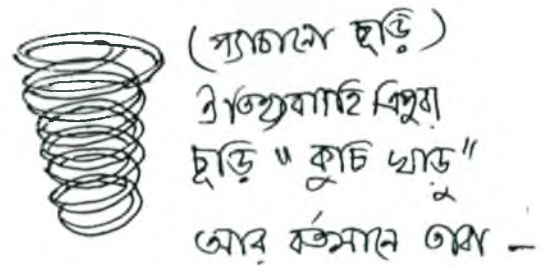 (প্যাচানো ছূড়ি)
ঐতিহ্যবাহি ত্রিপুরা
ছূড়ি "কুচি খাড়ু"
আর বর্তমানে তারা –